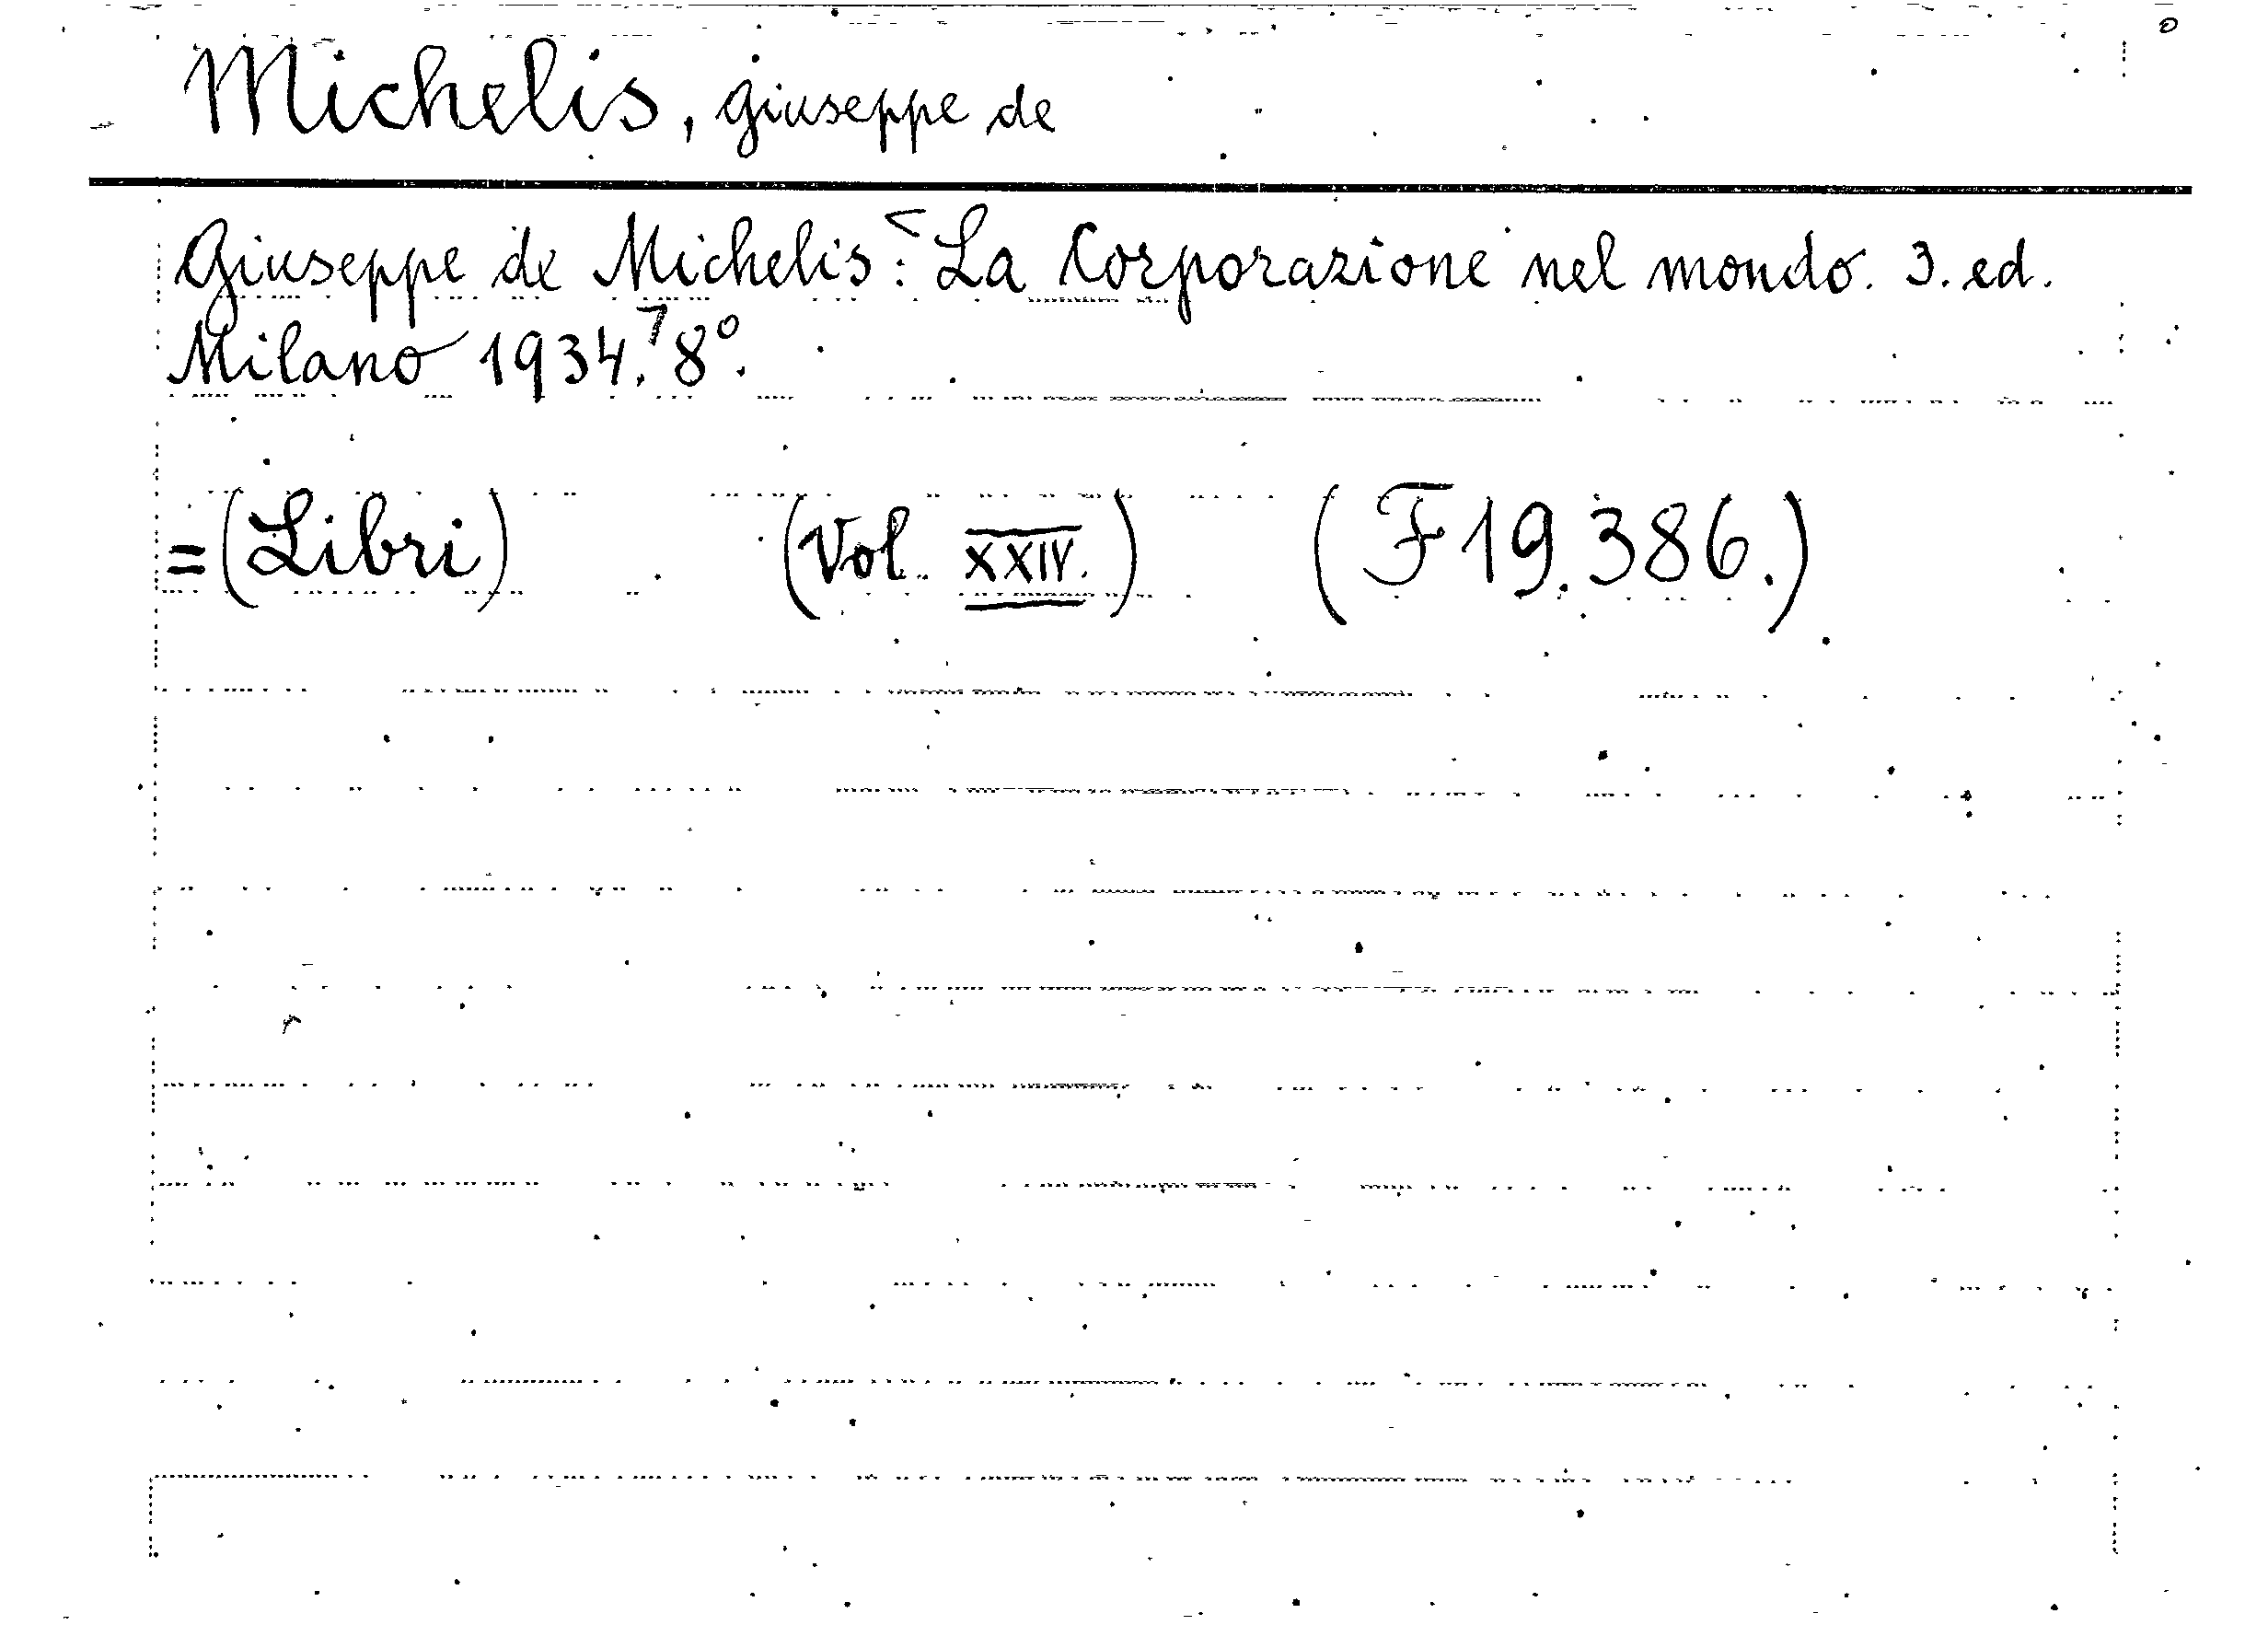 Michelis, Giuseppe de
Giuseppe de Michelis: La Corporazione nel mondo. 3. ed.
Milano 1934. 8°.
=(Libri) (Vol. XXIV.) (F19.386.)